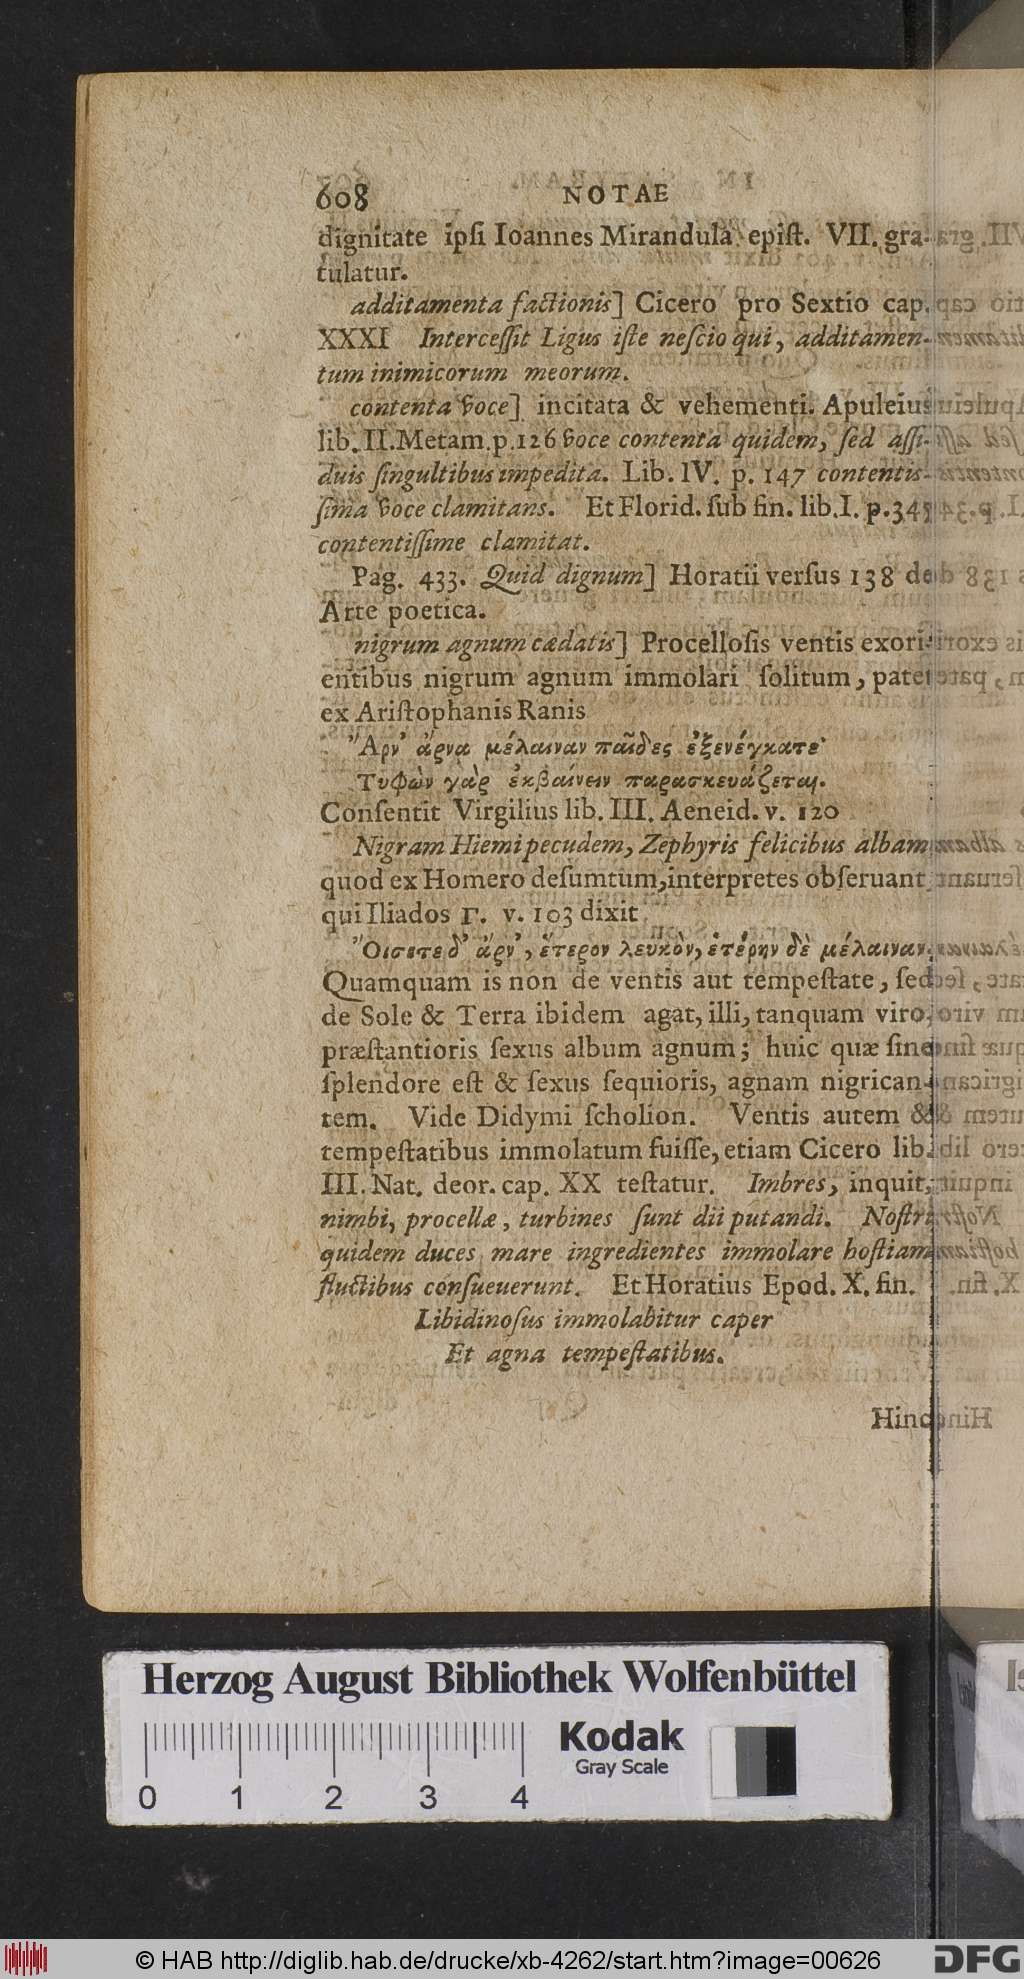 608 NOTAE
dignitate ipſi Ioannes Mirandula epiſt. VII. gra-
tulatur.
additamenta factionis] Cicero pro Sextio cap.
XXXI Interceſſit Ligus iſte neſcio qui, additamen-
tum inimicorum meorum.
contenta voce] incitata & vehementi. Apuleius
lib. II. Metam. p. 126 voce contenta quidem, ſed aſſi-
duis ſingultibus impedita. Lib. IV. p. 147 contentiſ-
ſima voce clamitans. Et Florid. ſub fin. lib. I. p. 347
contentiſſime clamitat.
Pag. 433. Quid dignum] Horatii verſus 138 de
Arte poetica.
nigrum agnum cædatis] Procelloſis ventis exori-
entibus nigrum agnum immolari ſolitum, patet
ex Ariſtophanis Ranis
Ἄρν' ἄρνα μέλαιναν παῖδες ἐξενέγκατε·
Τυφὼν γὰρ ἐκβαίνειν παρασκευάζεται.
Conſentit Virgilius lib. III. Aeneid. v. 120
Nigram Hiemi pecudem, Zephyris felicibus albam
quod ex Homero deſumtum, interpretes obſeruant
qui Iliados Γ. v. 103 dixit
Ὄισετε δ' ἄρν', ἕτερον λευκὸν, ἑτέρην δὲ μέλαιναν.
Quamquam is non de ventis aut tempeſtate, ſed
de Sole & Terra ibidem agat, illi, tanquam viro,
præſtantioris ſexus album agnum; huic quæ ſine
ſplendore eſt & ſexus ſequioris, agnam nigrican-
tem. Vide Didymi ſcholion. Ventis autem &
tempeſtatibus immolatum fuiſſe, etiam Cicero lib.
III. Nat. deor. cap. XX teſtatur. Imbres, inquit,
nimbi, procellæ, turbines ſunt dii putandi. Noſtri
quidem duces mare ingredientes immolare hoſtiam
fluctibus conſueuerunt. Et Horatius Epod. X. fin.
Libidinoſus immolabitur caper
Et agna tempeſtatibus.
Hinc
Herzog August Bibliothek Wolfenbüttel
Kodak
Gray Scale
0 1 2 3 4
© HAB http://diglib.hab.de/drucke/xb-4262/start.htm?image=00626
DFG